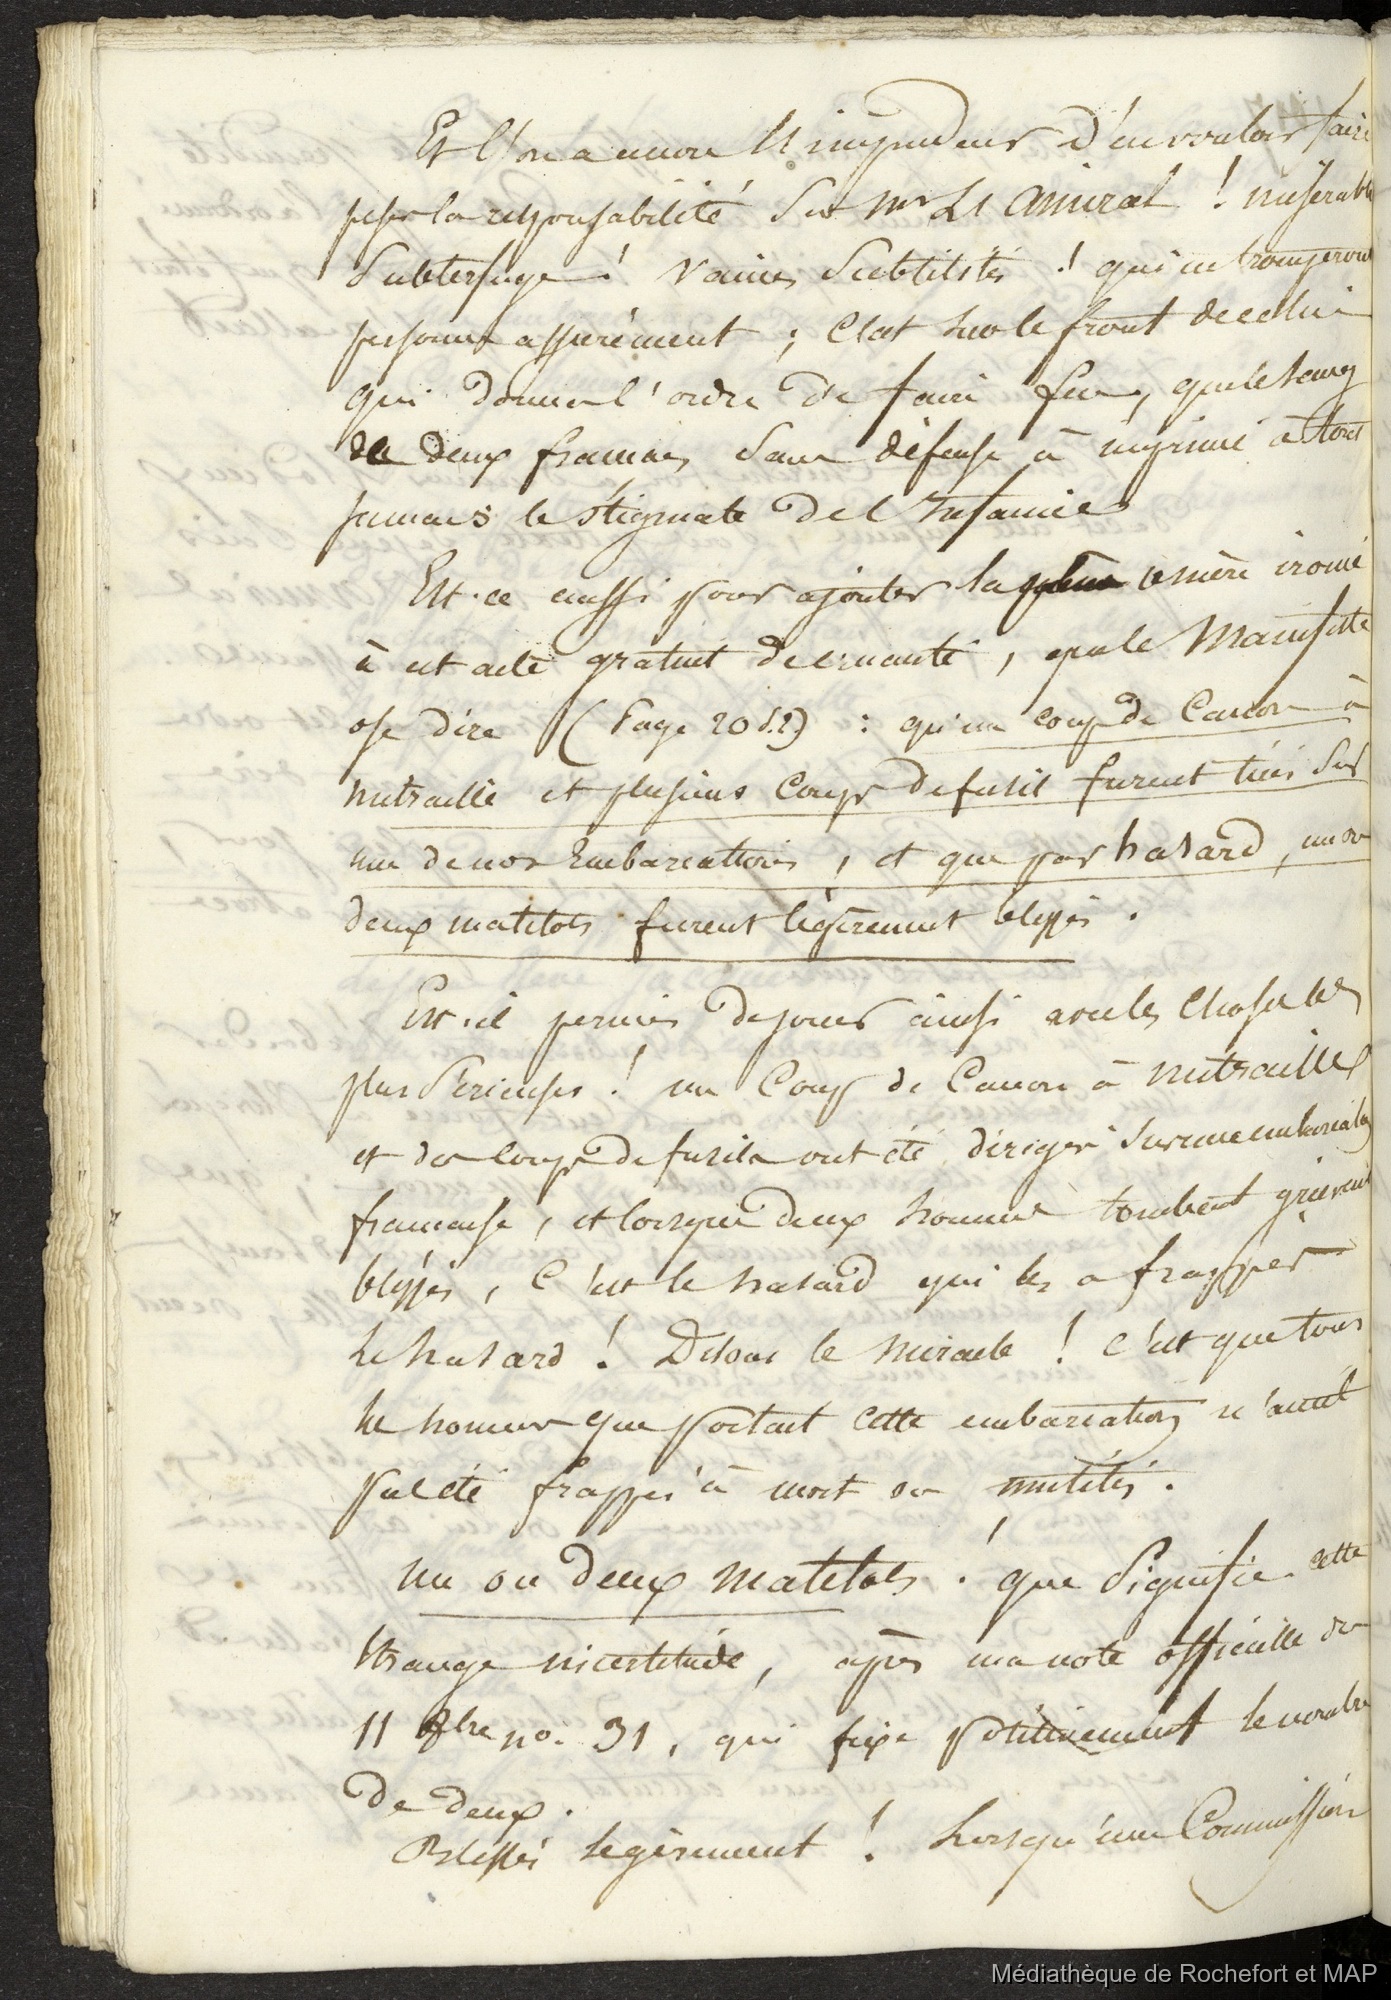 Et l'on a encore l'impudeur d'en vouloir faire
peser la responsabilité sur Mr L'amiral ! misérable
Subterfuge ! Vaines Subtilités ! qui ne tromperont
personne assurément ; C'est sur le front de celui
qui donna l'ordre de faire feu, que le sang
de deux francais sans défense à imprimé à tout
jamais le stigmate de l'Infamie
Est-ce aussi pour ajouter la dernière ironie
à cet acte gratuit de cruauté, que le Manifeste
ose dire (Page 20 §.2) : qu'un coup de Canon à
mitraille et plusieurs Coups de fusil furent tirés sur
une de nos Embarcations, et que par hasard, un ou
deux matelots furent légèrement blessés.
Est-il permis de jouer ainsi avec les choses les
plus Sérieuses ! un Coup de Canon à mitraille
et des coups de fusils ont été dirigés sur une embarcation
francaise, et lorsque deux hommes tombent grièvement
blessés, C'est le hasard qui les a frappés
Le hasard ! Disons le miracle ! C'est que tous
les hommes que portait cette embarcation n'aient
pas été frappés à mort ou mutilés.
un ou deux matelots ! que Signifie cette
étrange incertitude, après ma note officielle du
11 8bre no. 31, qui fixe positivement le nombre
de deux.
Blessés légèrement ! Lorsqu'une Commission
Médiathèque de Rochefort et MAP